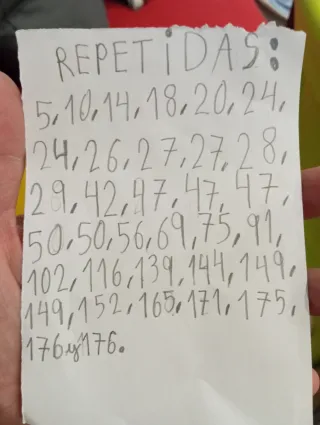 REPETIDAS:
5,10,14,18,20,24,
24,26,27,27,28,
29,42,47,47,47,
50,50,56,69,75,91,
102,116,139,144,149,
149,152,165,171,175,
176y176.